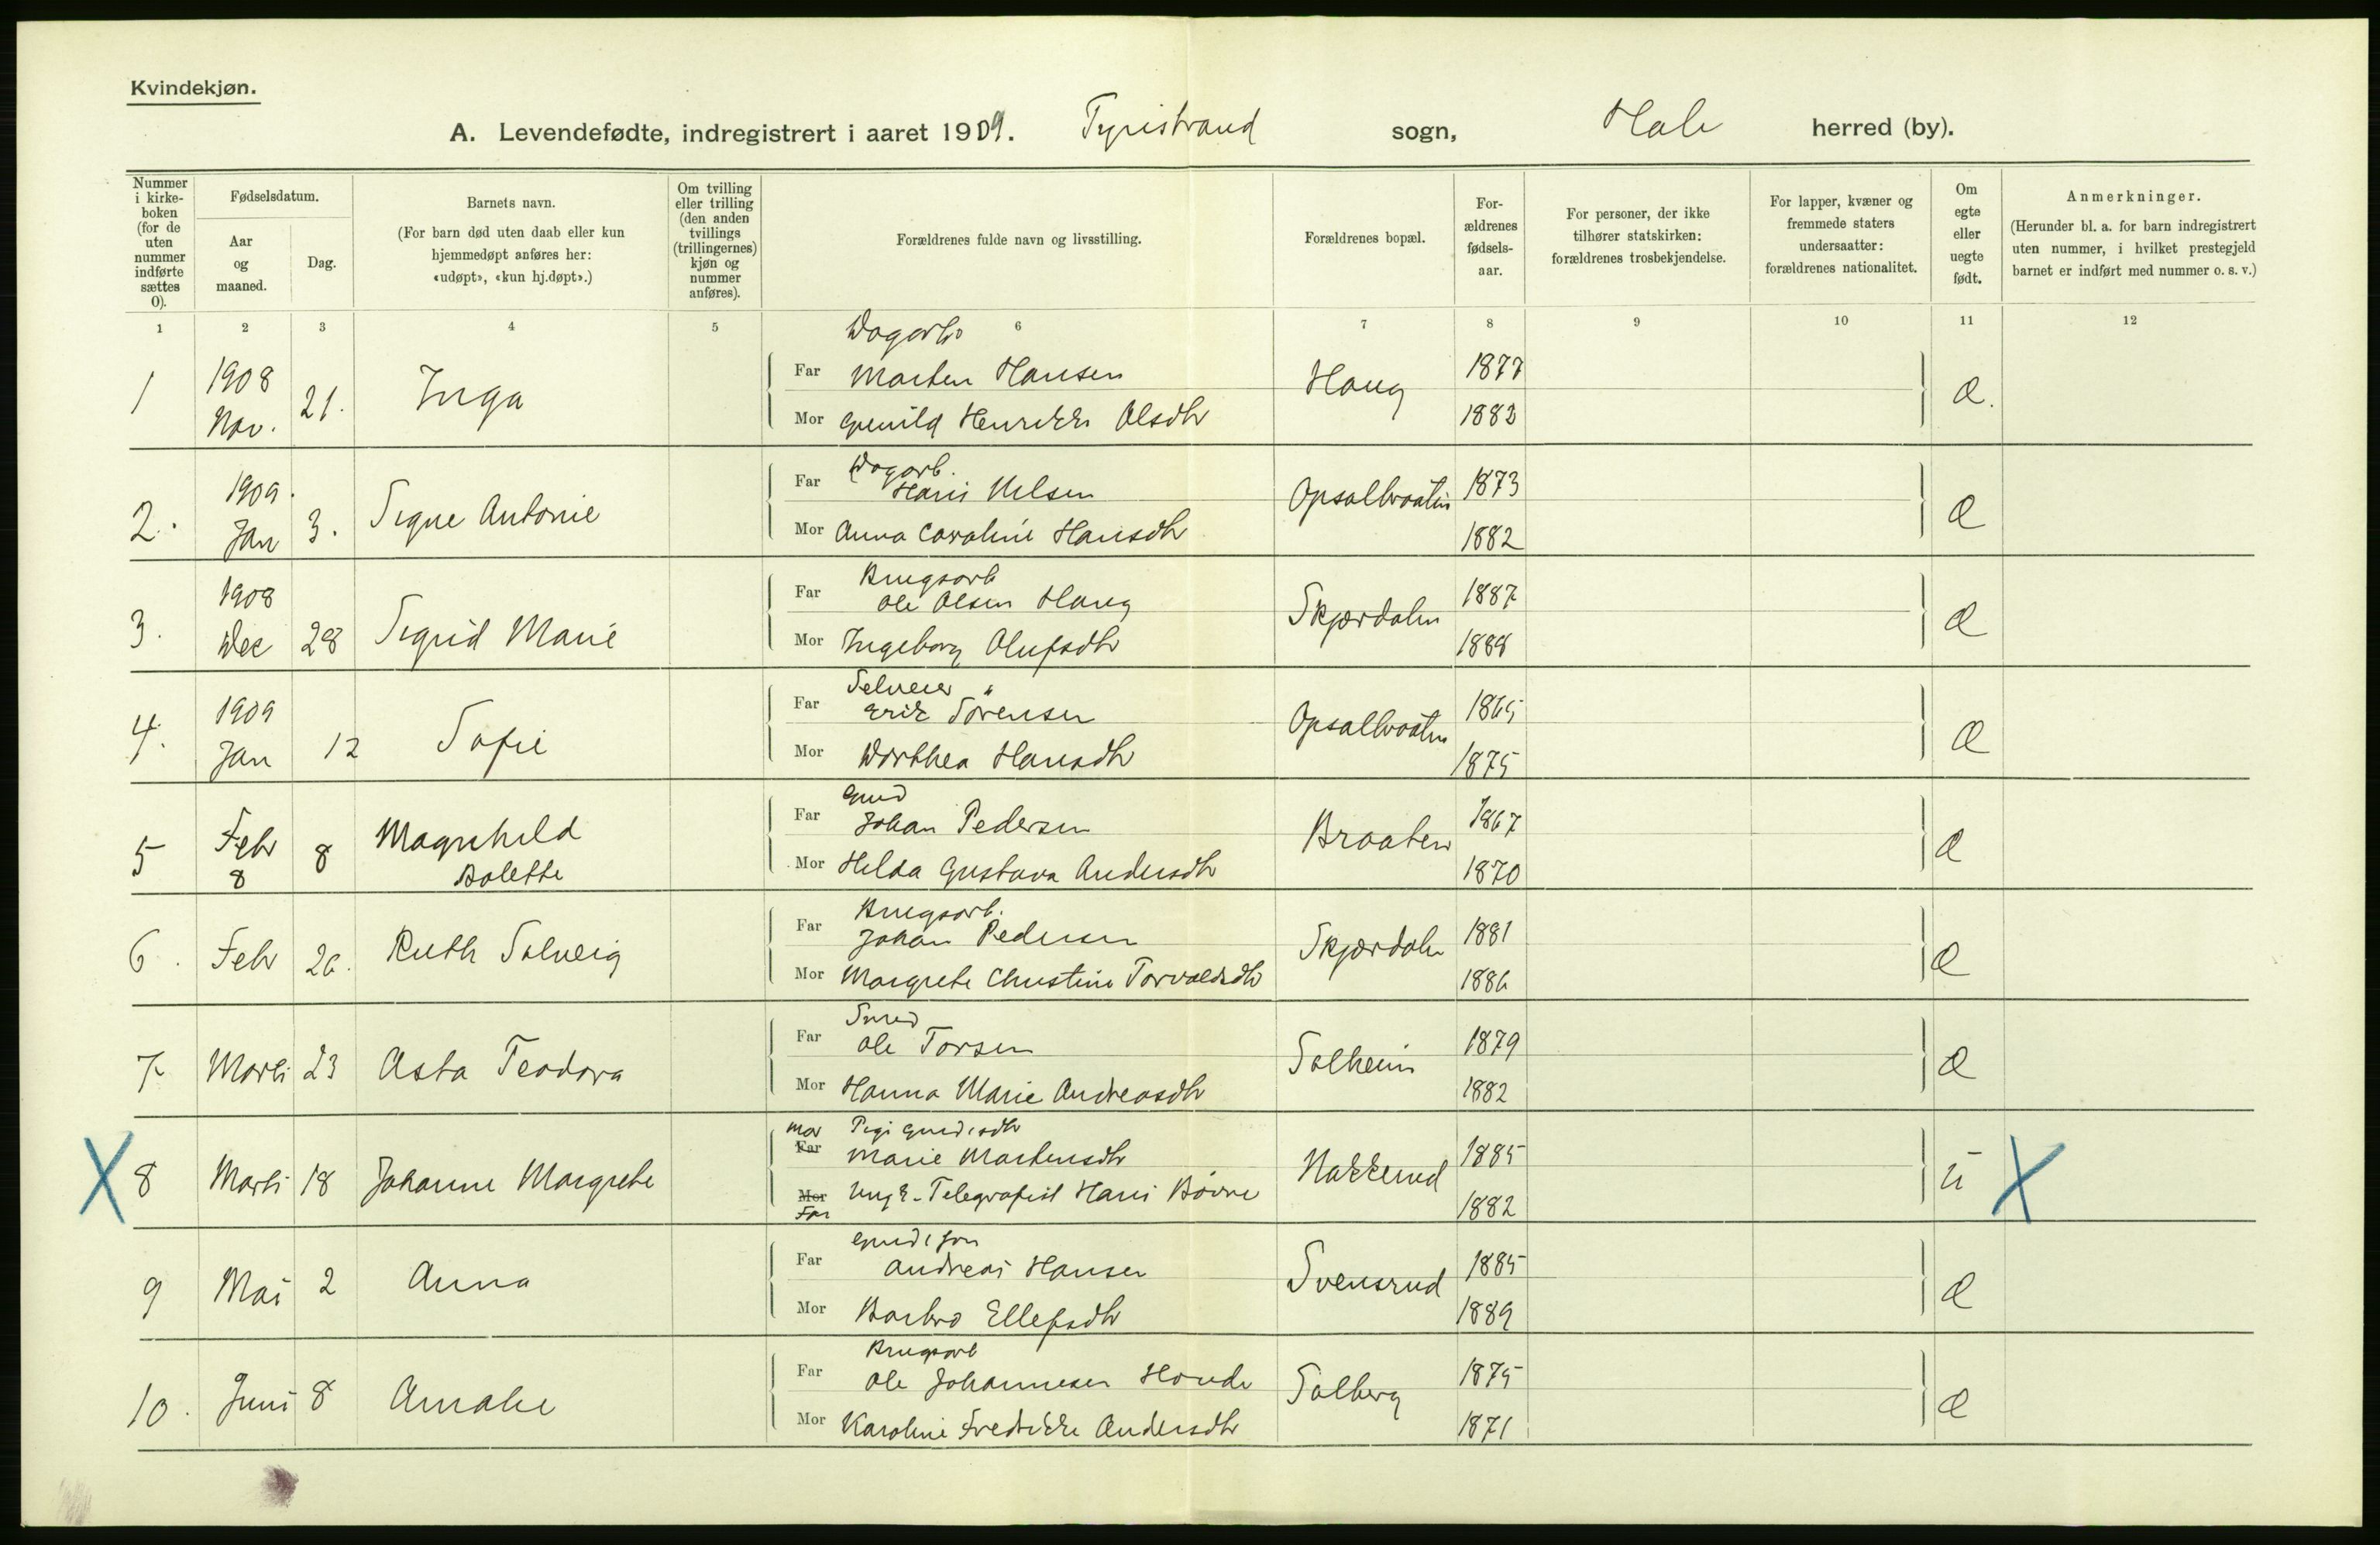 Kvindekjøn.
A. Levendefødte, indregistrert i aaret 1909. Tyristrand sogn, Hole herred (by).
Nummer i kirke-boken (for de uten nummer indførte sættes 0).
Fødselsdatum.
Aar og maaned.
Dag.
Barnets navn.
(For barn død uten daab eller kun hjemmedøpt anføres her: «udøpt», «kun hj.døpt».)
Om tvilling eller trilling (den anden tvillings (trillingernes) kjøn og nummer anføres).
Forældrenes fulde navn og livsstilling.
Forældrenes bopæl.
For-ældrenes fødsels-aar.
For personer, der ikke tilhører statskirken: forældrenes trosbekjendelse.
For lapper, kvæner og fremmede staters undersaatter: forældrenes nationalitet.
Om egte eller uegte født.
Anmerkninger.
(Herunder bl. a. for barn indregistrert uten nummer, i hvilket prestegjeld barnet er indført med nummer o. s. v.)
1 2 3 4 5 6 7 8 9 10 11 12
Dagarb
1 1908 Nov. 21. Inga
Far Marten Hansen Haug 1877
Mor Gunild Henrikke Olsdtr 1883
Æ.
2. 1909. Jan 3. Signe Antonie
Dagarb.
Far Hans Nilsen Opsalbraaten 1873
Mor Anna Caroline Hansdtr 1882
Æ
3. 1908 Dec 28 Sigrid Marie
Brugsarb
Far Ole Olsen Haug Skjærdalen 1887
Mor Ingeborg Olufsdtr 1888
Æ
4. 1909 Jan 12 Sofie
Selveier
Far Erik Sørensen Opsalbraaten 1865
Mor Dorthea Hansdtr 1875
Æ
5 Febr 8 8 Magnhild Bolette
Grmd
Far Johan Pedersen Braaten 1867
Mor Hilda Gustava Andersdtr 1870
Æ
6. Febr 26. Ruth Solveig
Brugsarb.
Far Johan Pedersen Skjærdalen 1881
Mor Margrete Christine Torvaldsdtr 1886
Æ
7 Marts 23 Asta Teodora
Smed
Far Ole Torsen Solheim 1879
Mor Hanna Marie Andreasdtr 1882
Æ
X 8 Marts 18 Johanne Margrete
mor Pige
Far Marie Martensdtr Nakkerud 1885
Mor Ungk. Telegrafist Hans
Far 1882
U X
9 Mai 2 Anna
Far Andreas Hansen Svensrud 1885
Mor Barbro Ellefsdtr 1889
Æ
10. Juni 8 Amalie
Brugsarb
Far Ole Johannesen Solberg 1875
Mor Karoline Fredrikke Andersdtr 1871
Æ